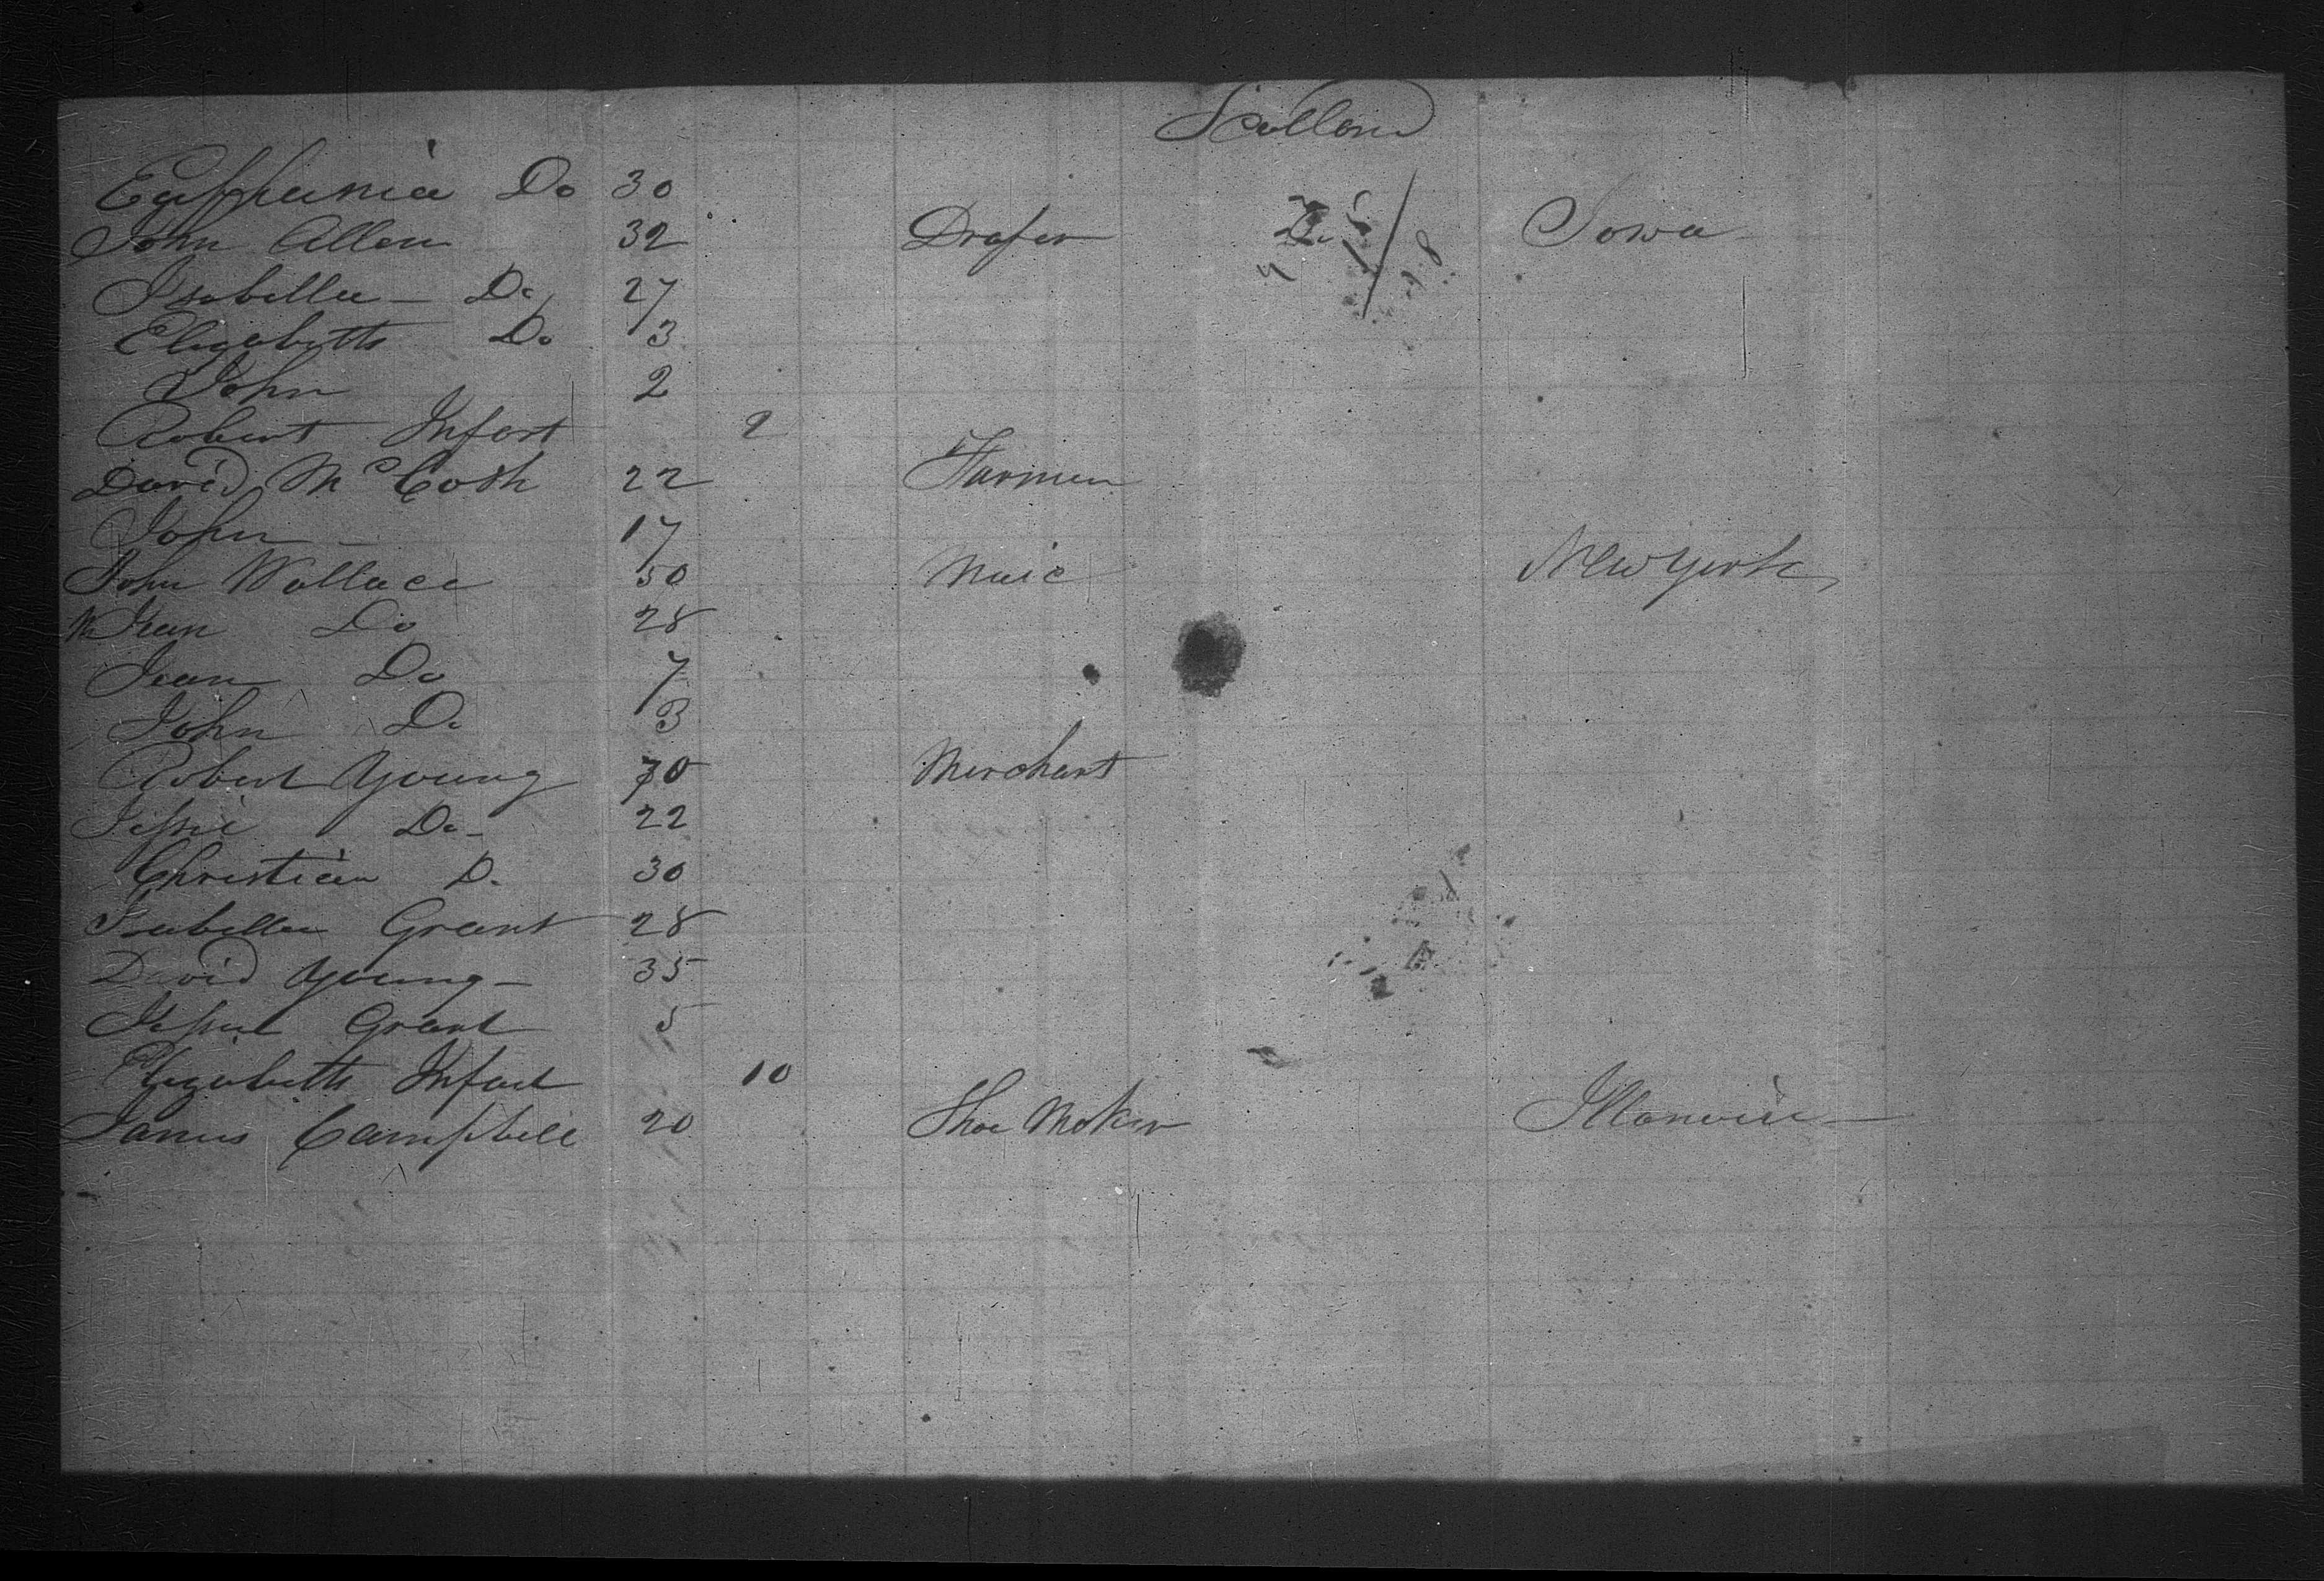 Scotland
Eupheunia Do 30
John Allen 32 Draper Do Iowa
Isabella - Do 27
Elizabeth Do 3
John 2
Robert Infant 2
David McCosh 22 Farmer
John - 17
John Wallace 50 New York
Jean Do 28
Jean Do 7
John Do 3
Robert Young 70 Merchant
Jessie Do - 22
Christian D. 30
Isabella Grant 28
David Young - 35
Grant 5
Elizabeth Infant 10
James Campbell 20 Shoe Maker